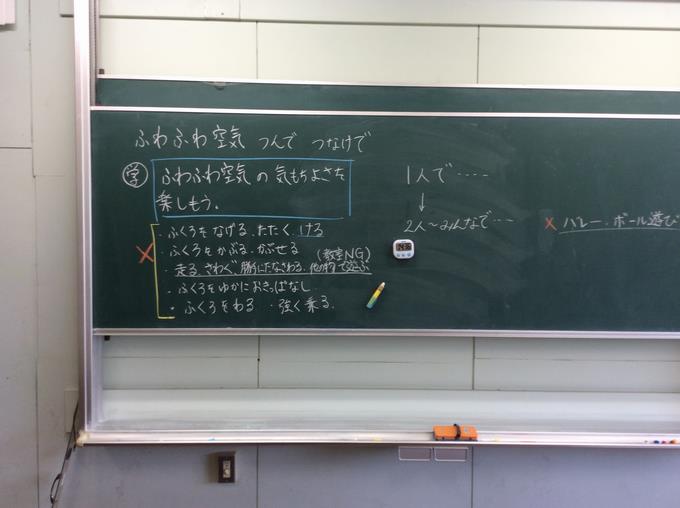 ふわふわ空気 つんで つなげて
学 ふわふわ空気の気もちよさを
楽しもう。
・ふくろをなげる.たたく.ける
・ふくろをかぶる.かぶせる
(教室NG)
・走る.さわぐ
他の物で遊ぶ
・ふくろをゆかにおきっぱなし
・ふくろをわる ・強く乗る.
×
1人で・・・・
↓
2人〜みんなで・・・
× バレー.ボール遊び